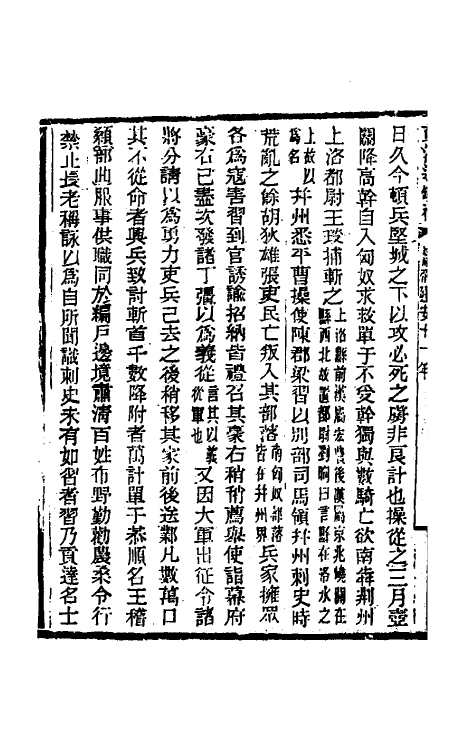 日久今頓兵堅城之下以攻必死之虜非良計也操從之三月壺
關降高幹自入匈奴求救單于不受幹獨與數騎亡欲南犇荆州
上洛都尉王琰捕斬之上洛縣前漢屬弘農後漢屬京兆嶢關在縣西北故置都尉劉昫曰言縣在洛水之
上故以爲名幷州悉平曹操使陳郡梁習以別部司馬領幷州刺史時
荒亂之餘胡狄雄張吏民亡叛入其部落南匈奴部落皆在幷州界兵家擁眾
各爲寇害習到官誘諭招納皆禮召其豪右稍稍薦舉使詣幕府
豪右已盡次發諸丁彊以爲義從言其以義從軍也又因大軍出征令諸
將分請以爲勇力吏兵已去之後稍移其家前後送鄴凡數萬口
其不從命者興兵致討斬首千數降附者萬計單于恭順名王稽
顙部曲服事供職同於編戶邊境肅清百姓布野勤勸農桑令行
禁止長老稱詠以爲自所聞識刺史未有如習者習乃貢達名士